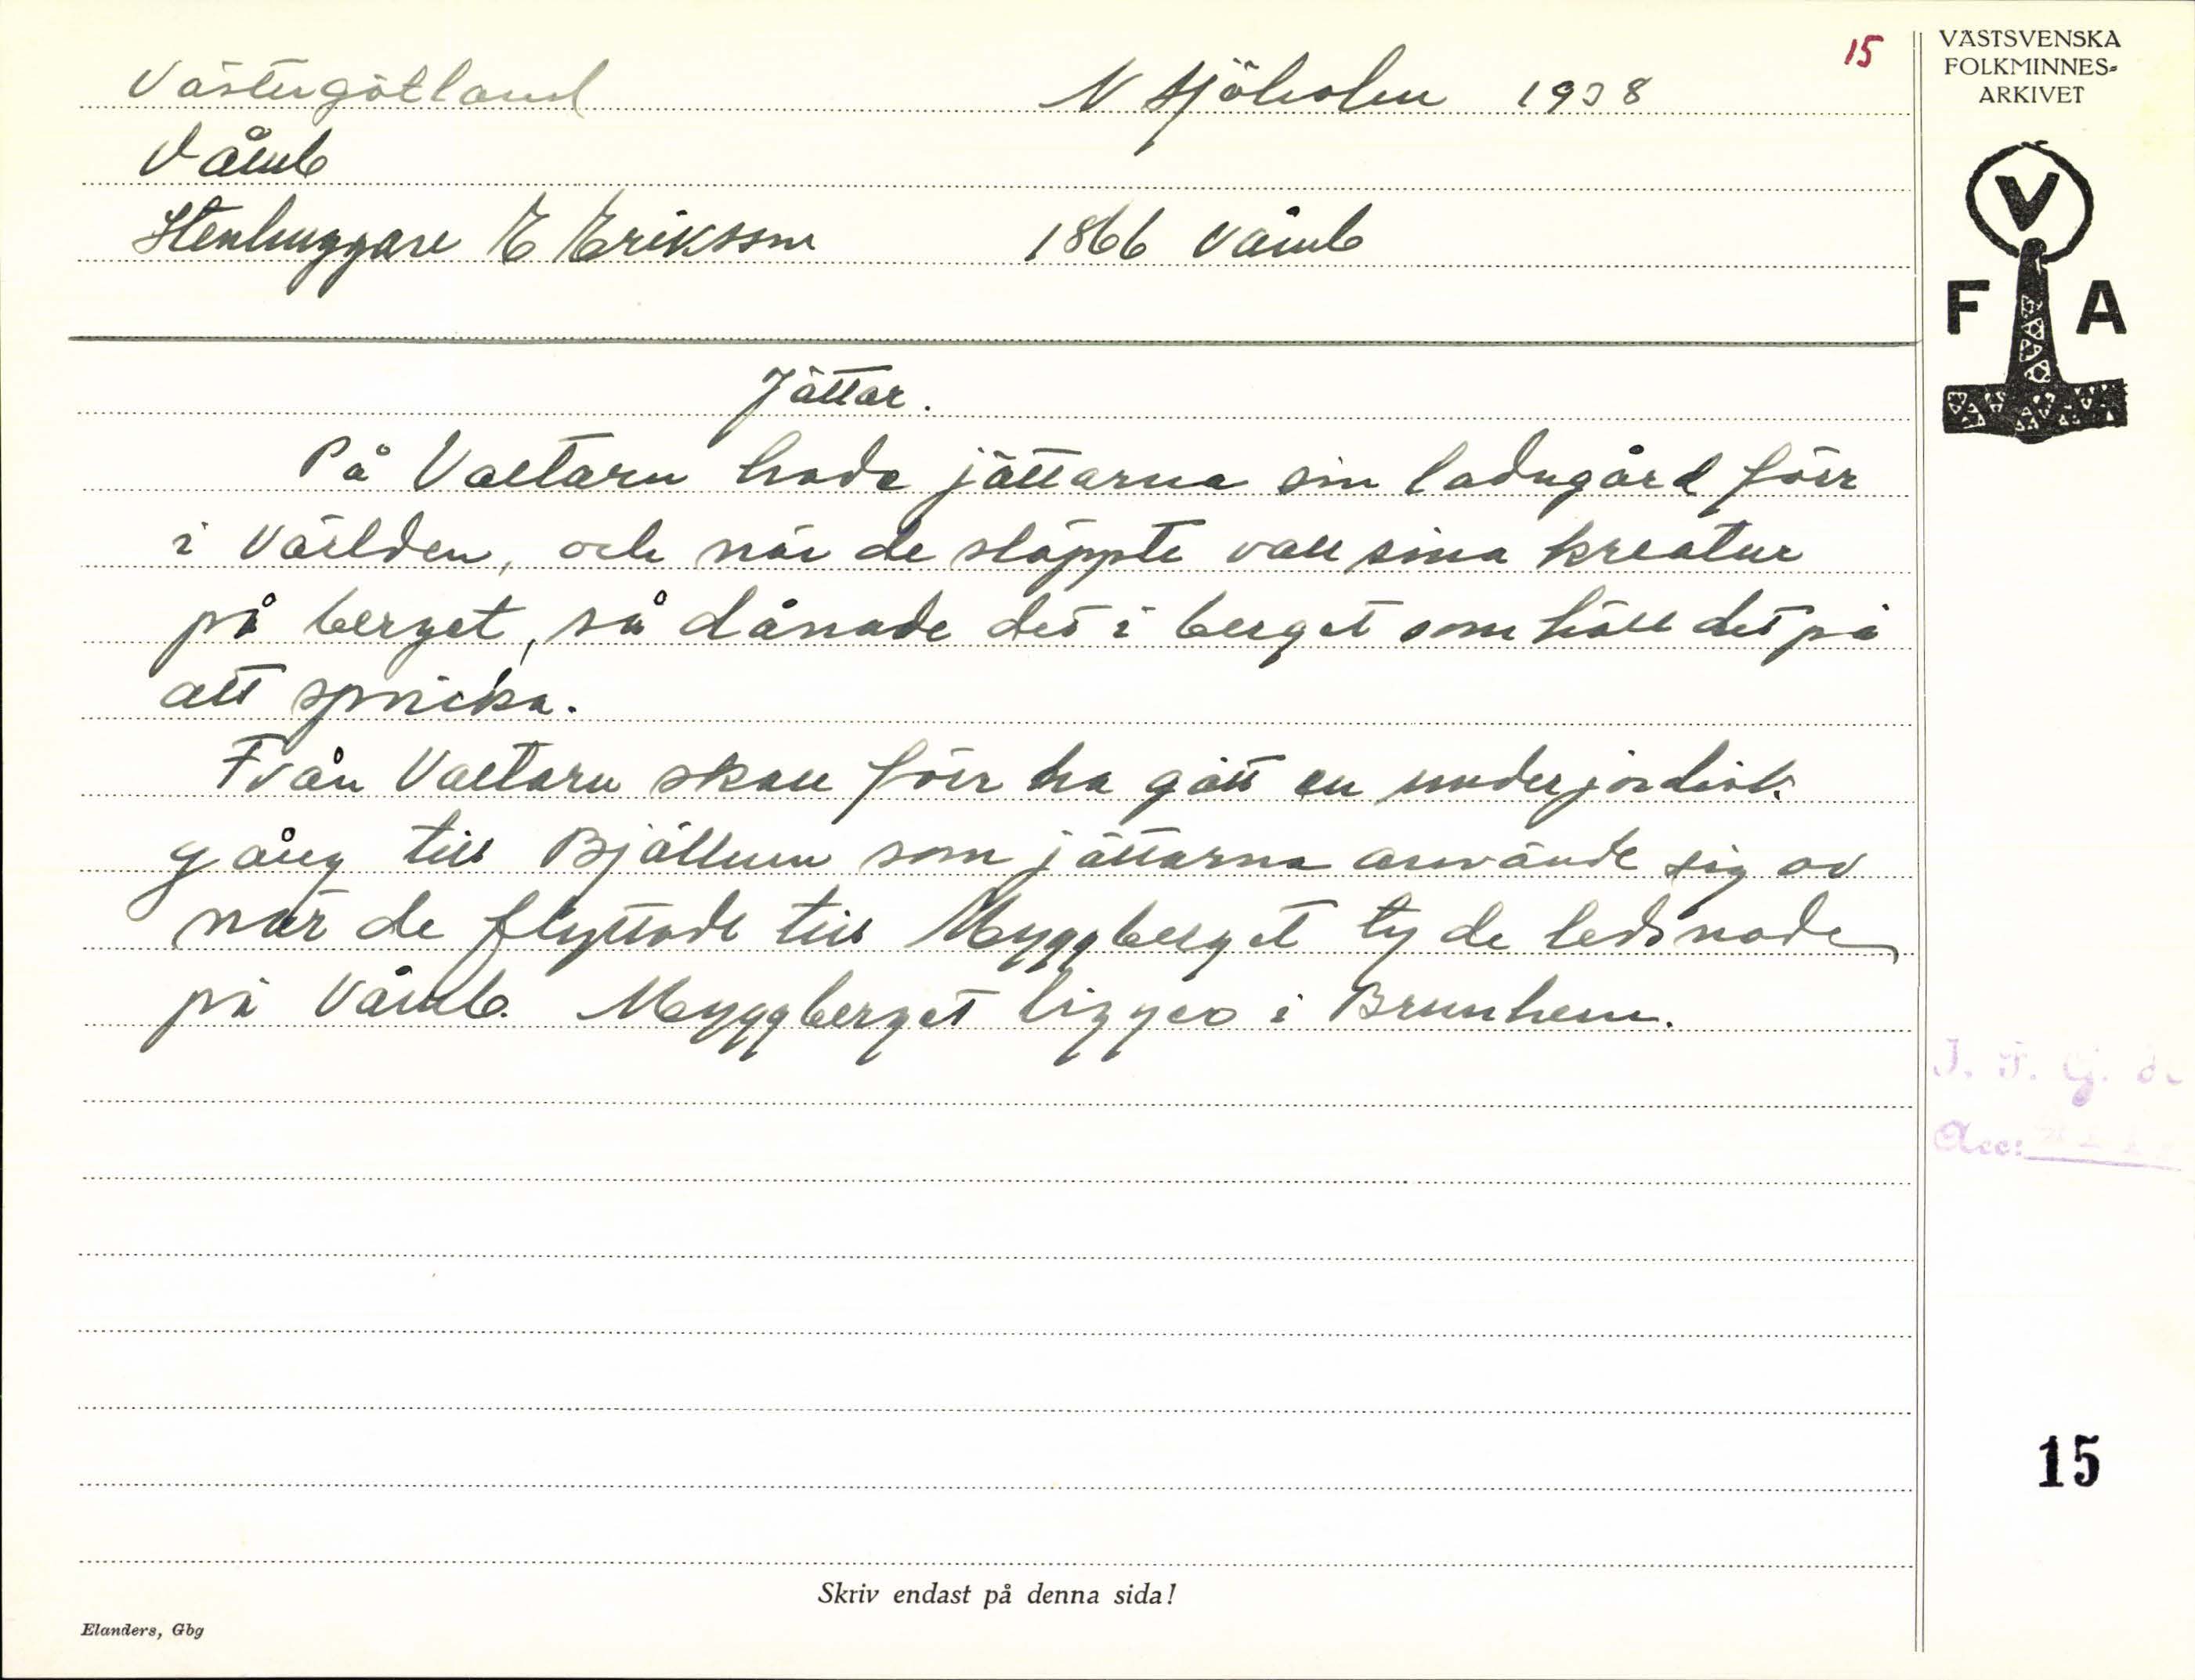 15
VÄSTSVENSKA
FOLKMINNES-
ARKIVET
V
F A
Västergötland N Sjöholm 1938
Våmb
Stenhuggare E Eriksson 1866 Våmb
Jättar.
På Valtarn hade jättarna sin ladugård förr
i Världen, och när de släppte vall sina kreatur
på berget, så dånade det i berget som höll det på
att spricka.
Från Valtarn skall förr ha gått en underjordisk
gång till Bjällum som jättarna använde sig av
när de flyttade till Myggberget ty de ledsnade
på Våmb. Myggberget ligges i Brunhem.
Acc:
15
Skriv endast på denna sida!
Elanders, Gbg